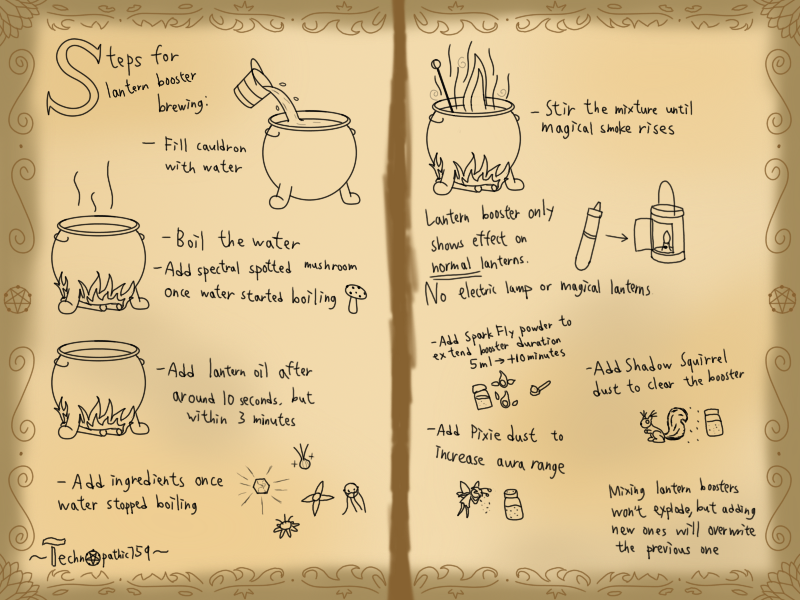 Steps for
lantern booster
brewing:
- Fill cauldron
with water
- Boil the water
- Add spectral spotted mushroom
once water started boiling
- Add lantern oil after
around 10 seconds, but
within 3 minutes
- Add ingredients once
water stopped boiling
~Technopathic759~
- Stir the mixture until
magical smoke rises
Lantern booster only
shows effect on
normal lanterns.
No electric lamp or magical lanterns
- Add Spark Fly powder to
extend booster duration
5ml → +10minutes
- Add Shadow Squirrel
dust to clear the booster
- Add Pixie dust to
increase aura range
Mixing lantern boosters
won't explode, but adding
new ones will overwrite
the previous one